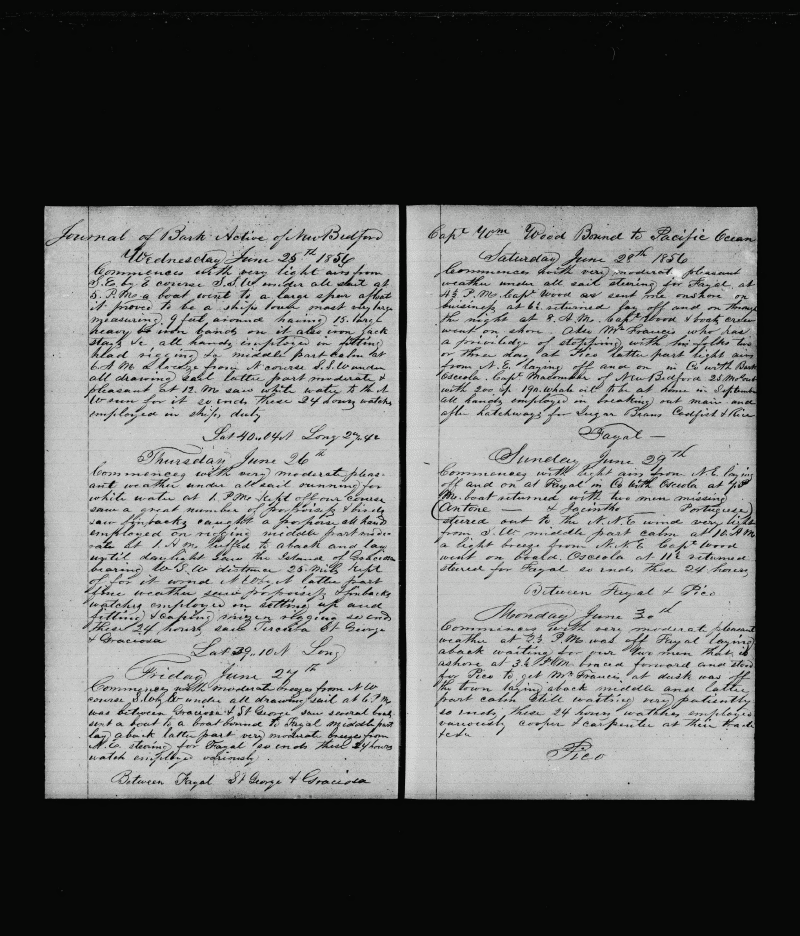 Journal of Bark Active of New Bedford
Wednesday June 25th 1856
Commences with very light airs from
S.E. by E course S.S.W under all sail at
5. P.M a boat went to a large spar afloat
it proved to be a ships lower mast very large
measuring 9 feet around having 15 large
heavy iron bands on it also iron Jack
stays &c all hands employed in fitting
head rigging &c middle part calm at
6 A M a breeze from N course S.S.W under
all drawing sail latter part moderate &
pleasant at 12 M saw white water to the
W run for it so ends these 24 hours watches
employed in ships duty
Lat 40..04 N Long 27.42
Thursday June 26th
Commences with very moderate pleas-
ant weather under all sail running for
white water at 1. P M Kept off our course
saw a great number of porpoises & birds
saw finbacks caught a porpoise all hands
employed on rigging middle part mode-
rate at 1 A M luffed to aback and lay
until daylight saw the Island of Graciosa
bearing W S W distance 25 miles Kept
off for it wind N W by N latter part
fine weather saw porpoises & finbacks
watches employed in setting up and
fitting & caping mizen rigging so ends
these 24 hours saw Terceira St George
& Graciosa
Lat 39..10 N Long
Friday June 27th
Commences with moderate breezes from N W
course S.W by W under all drawing sail at 6 P M
was between Graciosa & St George saw several
sent a boat to a boat bound to Fayal middle part
lay aback latter part very moderate breezes from
N.E. steering for Fayal so ends these 24 hours
watch employed variously
Between Fayal St George & Graciosa
Capt Wm Wood Bound to Pacific Ocean
Saturday June 28th 1856
Commences with very moderate pleasant
weather under all sail steering for Fayal at
4½ P.M. Capt Wood was sent onshore on
business at 6½ returned lay off and on through
the night at 8. A.M. Capt Wood & boats crew
went on shore Also Mr Francis who has
a priviledge of stopping with his folks two
or three days at Pico latter part light airs
from N.E. laying off and on in Co with Bark
Osceola Capt of New Bedford 25 Mos out
with 200 sp 190 whale oil to be at home in September
all hands employed in breaking out main and
after hatchways for Sugar Beans Codfish & Rice
Fayal —
Sunday June 29th
Commences with light airs from N.E. laying
off and on at Fayal in Co with Osceola at
M. boat returned with two men missing
(Antone — & Jacintho — Portuguese)
steered out to the N.N.E wind very light
from S.W middle part calm at 10. A M
a light breeze from N.N.E Capt Wood
went on board Osceola at 11 returned
steered for Fayal so ends these 24 hours
Between Fayal & Pico
Monday June 30th
Commences with very moderate pleasant
weather at 2½ P.M was off Fayal laying
aback waiting for our two men that is
ashore at 3½ P.M. braced forward and stood
for Pico to get Mr Francis at dusk was off
the town laying aback middle and latter
part calm still waiting very patiently
so ends these 24 hours watches employed
variously cooper & carpenter at their trade
&c &c
Pico